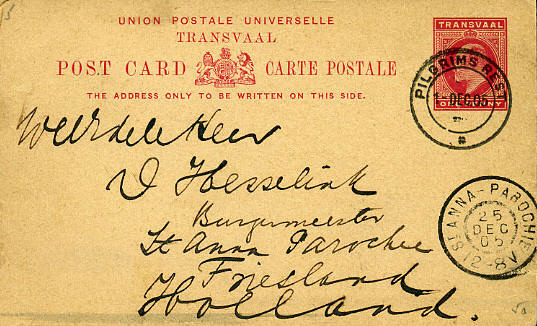 UNION POSTALE UNIVERSELLE
TRANSVAAL
POST CARD CARTE POSTALE
THE ADDRESS ONLY TO BE WRITTEN ON THIS SIDE.
TRANSVAAL
ONE PENNY
PILGRIMS REST
1 DEC 05
WelEdele Heer
D Hesselink
Burgemeester
St Anna Parochie
Friesland
Holland.
ST ANNA-PAROCHIE
25
DEC
05
12-8V